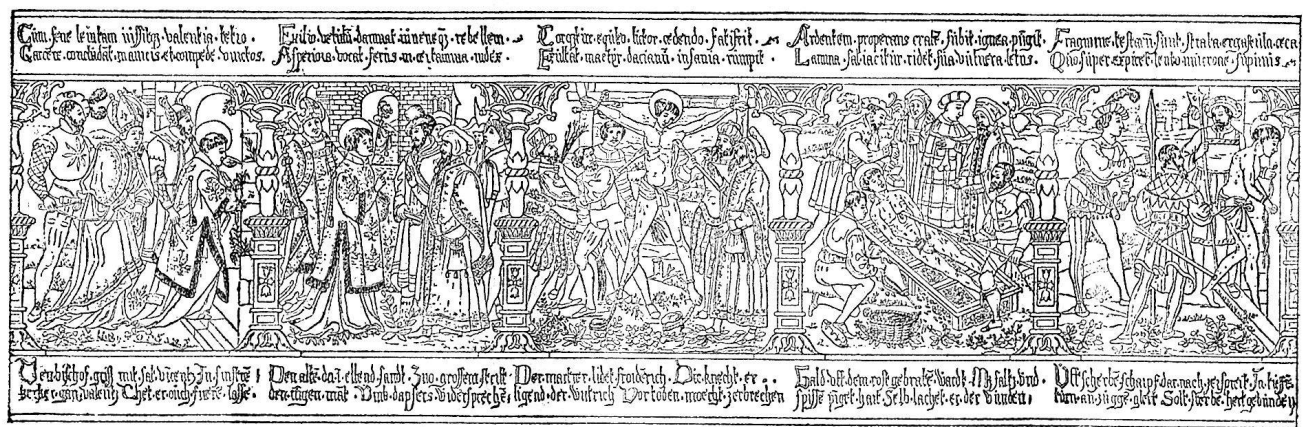 Cum sene leuitam iussisq valentia tetro.
Carcere concludat manicis et compede vinctos.
Exilio vetitū damnat iūueneq3 rebellem.
Asperiora vocat feris in certamina iudex.
Torqtur eqileo lictor cedendo fatiscit.
Exultat martyr dacianū insania rumpit.
Ardentem properans cratē subit ignea pūgit.
Lamina sal iacitur ridet sua vulnera letus.
Fragmine testarū sunt strata ergastula ceca
Quo super expiret lento mucrone supinus
Den bischof mit sāt vicentz Jn finstrē
kercker gan valentz Thet er ouch fuere lasse.
Den altē da ī ellend sandt Zuo grossem streitt
den iūngen māt Umb dapfers widersprechē
Der martrer lidet froiderich Die knecht er
ligend der wutrich Vor toben moecht zerbrechen
Bald uff dem rost gebratē wardt Mi saltz und
spisse pūget hart Selb lachet er der wunden
Uff scherbē scharpf dar nach zerspreit
turn an gleit Solt sterbē hert gebunden